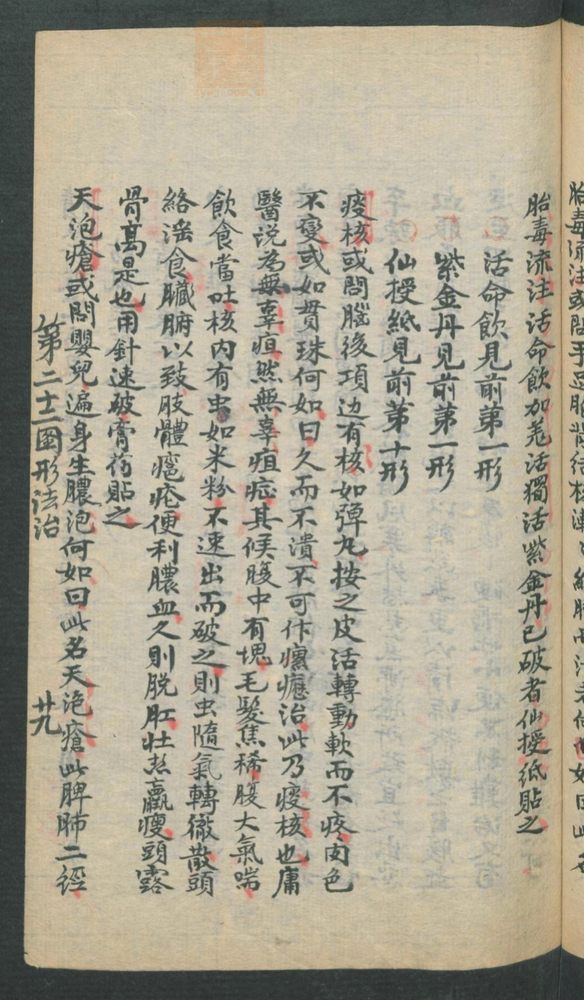 胎毒流注活命飲加羌活獨活紫金丹已破者仙授紙貼之
活命飲見前第一形
紫金丹見前第一形
仙授紙見前第十形
痰核或問腦後項边有核如彈丸按之皮活轉動軟而不疼肉色
不变或如貫珠何如曰久而不潰不可作瘰癧治此乃痰核也庸
醫説為無辜疽然無辜疽症其候腹中有塊毛髮焦稀腹大氣喘
飲食當吐核内有虫如米粉不速出而破之則虫隨氣轉徹散頭
絡滛食臟腑以致肢體瘡便利膿血久則脱肛壮热羸瘦頭露
骨髙是也用針速破膏药貼之
天泡瘡或問嬰兒遍身生膿泡何如曰此名天泡瘡此脾肺二經
第二十二圖形法治
廿九
胎毒流注或問手足胎